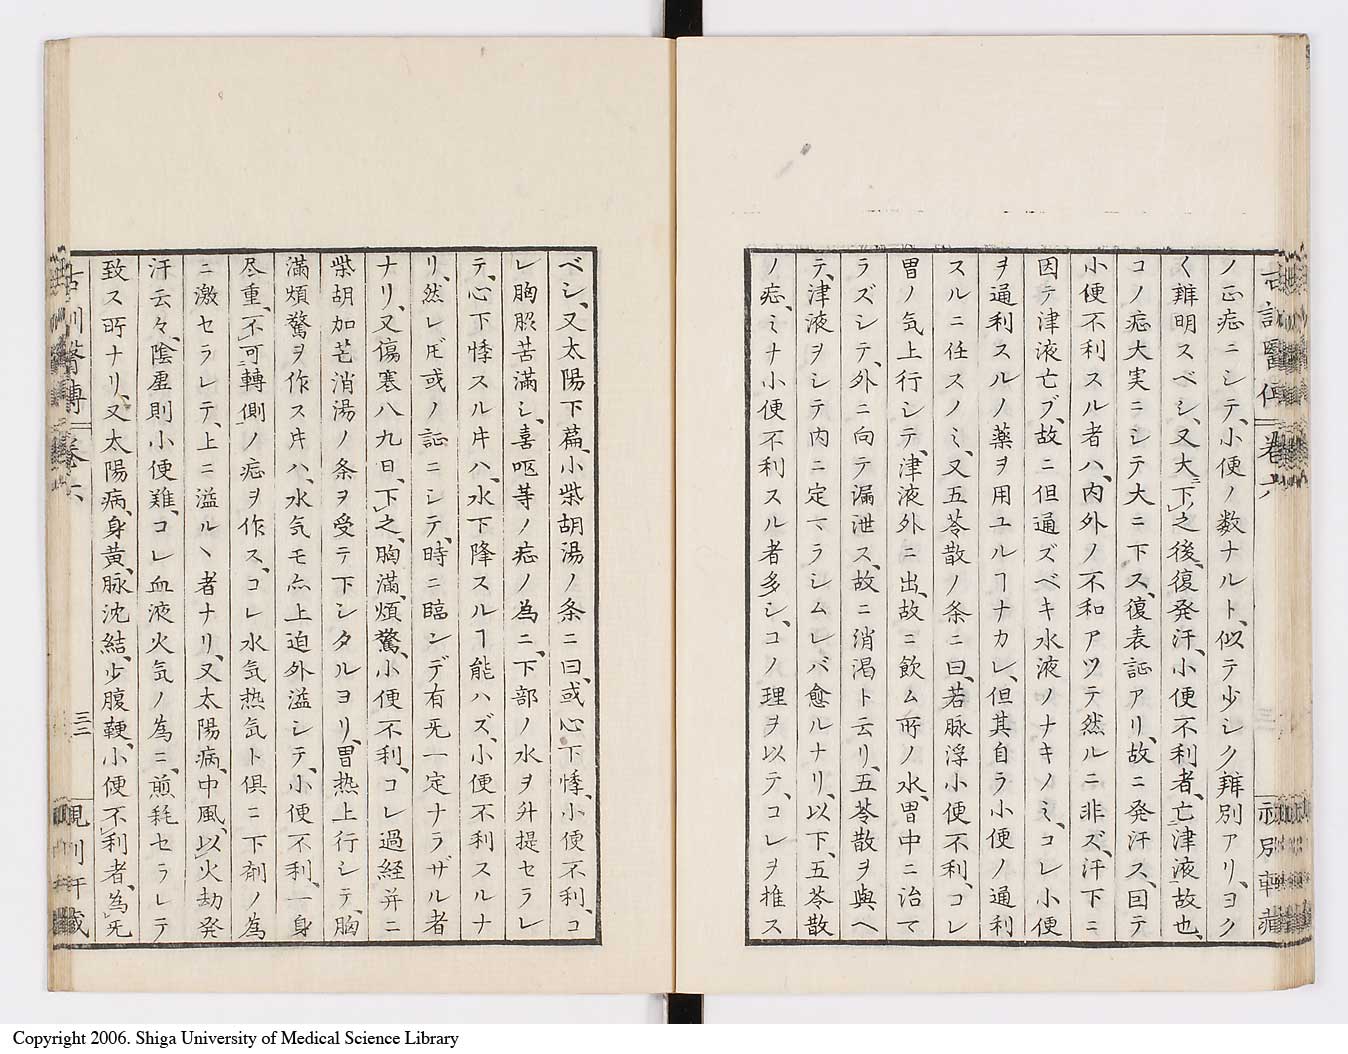 ノ正症ニシテ、小便ノ数ナルト、似テ少シク辨別アリ、ヨク
く辨明スベシ、又大下ノ之後、復発汗、小便不利者、亡津液故也、
コノ症大実ニシテ大ニ下ス、復表証アリ、故ニ発汗ス、因テ
小便不利スル者ハ、内外ノ不和アツテ然ルニ非ズ、汗下ニ
因テ津液亡ブ、故ニ但通ズベキ水液ノナキノミ、コレ小便
ヲ通利スルノ薬ヲ用ユルヿナカレ、但其自ラ小便ノ通利
スルニ任スノミ、又五苓散ノ条ニ曰、若脉浮小便不利、コレ
胃ノ気上行シテ、津液外ニ出、故ニ飲ム所ノ水、胃中ニ治マ
ラズシテ、外ニ向テ漏泄ス、故ニ消渇ト云リ、五苓散ヲ與ヘ
テ、津液ヲシテ内ニ定マラシムレバ愈ルナリ、以下、五苓散
ノ症、ミナ小便不利スル者多シ、コノ理ヲ以テ、コレヲ推ス
ベシ、又太陽下篇、小柴胡湯ノ条ニ曰、或心下悸、小便不利、コ
レ胸脇苦満シ、喜嘔等ノ症ノ為ニ、下部ノ水ヲ升提セラレ
テ、心下悸スル圱ハ、水下降スルヿ能ハズ、小便不利スルナ
リ、然レ𪜈或ノ証ニシテ、時ニ臨ンデ有旡一定ナラザル者
ナリ、又傷寒八九日、下之、胸満、煩驚、小便不利、コレ過経并ニ
柴胡加芒消湯ノ条ヲ受テ下シタルヨリ、胃熱上行シテ、胸
満煩驚ヲ作ス圱ハ、水気モ亦上迫外溢シテ、小便不利、一身
尽重、不可轉側ノ症ヲ作ス、コレ水気熱気ト倶ニ下剤ノ為
ニ激セラレテ、上ニ溢ルヽ者ナリ、又太陽病、中風、以火劫発
汗云々、陰虚則小便難、コレ血液火気ノ為ニ、煎耗セラレテ
致ス所ナリ、又太陽病、身黄、脉沈結、少腹鞕、小便不利者、為旡
古訓醫傳 卷六
三三